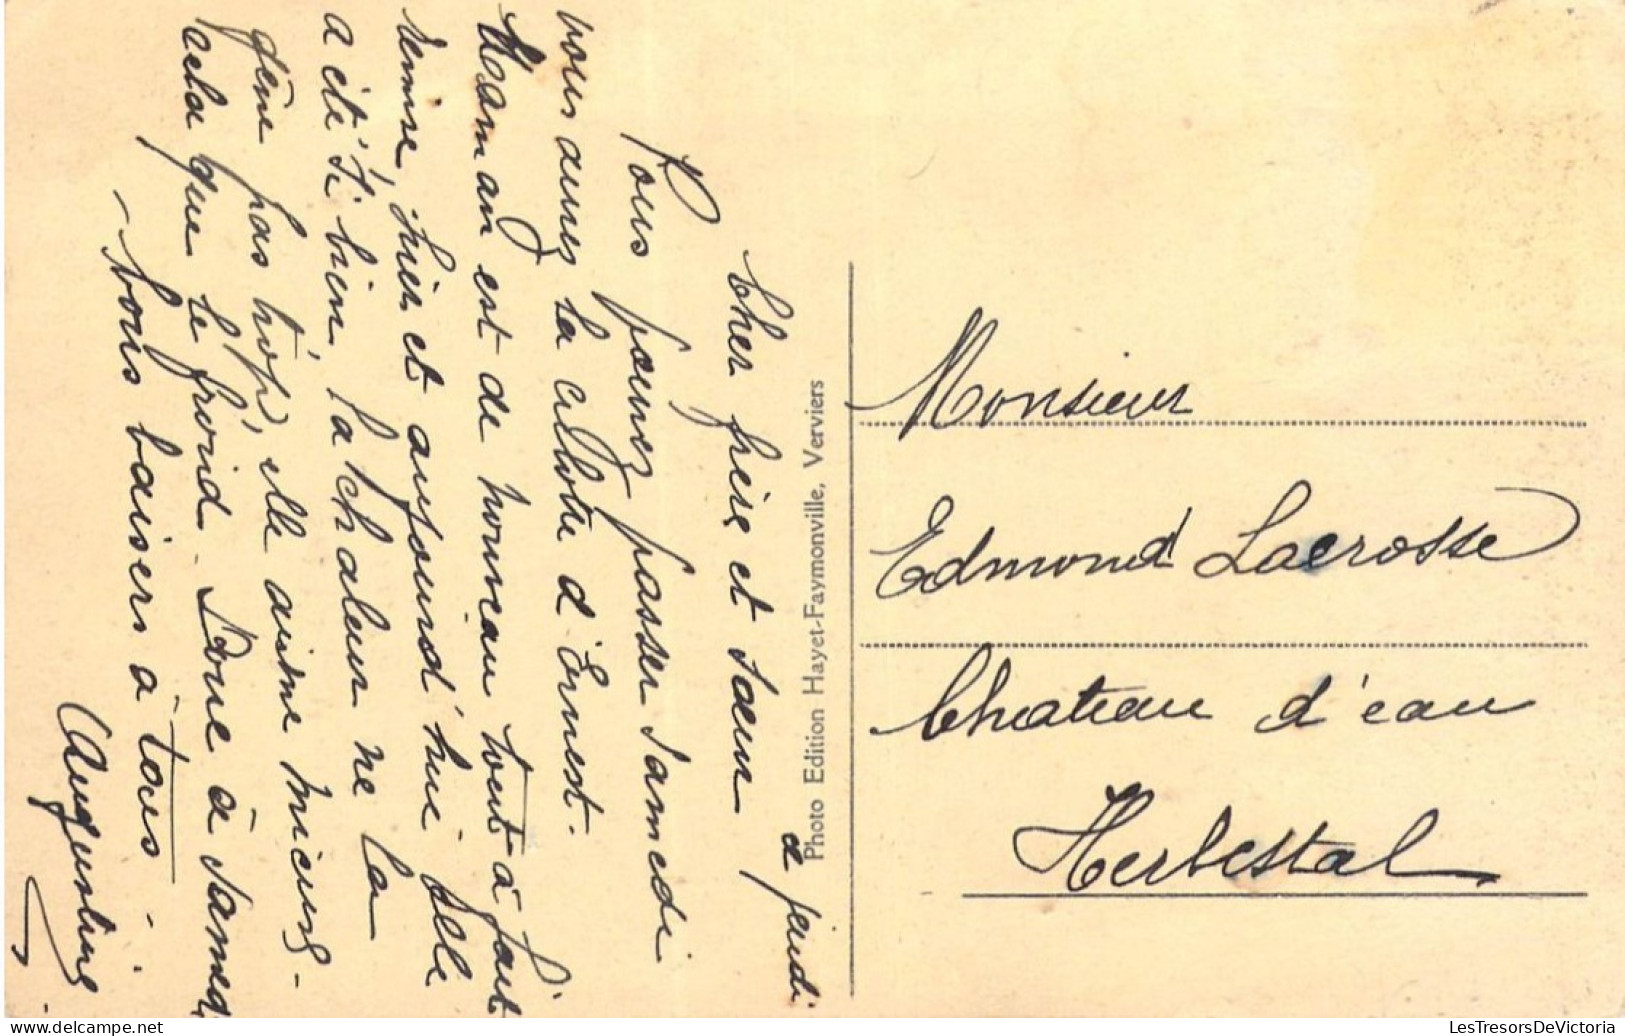 ce jeudi
Cher frère et sœur
Vous pouvez passer samedi
vous aurez la culotte d'Ernest.
Maman est de nouveau tout à fait
remise, hier et aujourd'hui elle
a été si bien, la chaleur ne la
gêne pas trop, elle aime mieux
cela que le froid. Donc à samedi
bons baisers à tous.
Augustine
Photo Edition Hayet-Faymonville, Verviers
Monsieur
Edmond Lacrosse
Château d'eau
Herbestal
LesTresorsDeVictoria
www.delcampe.net